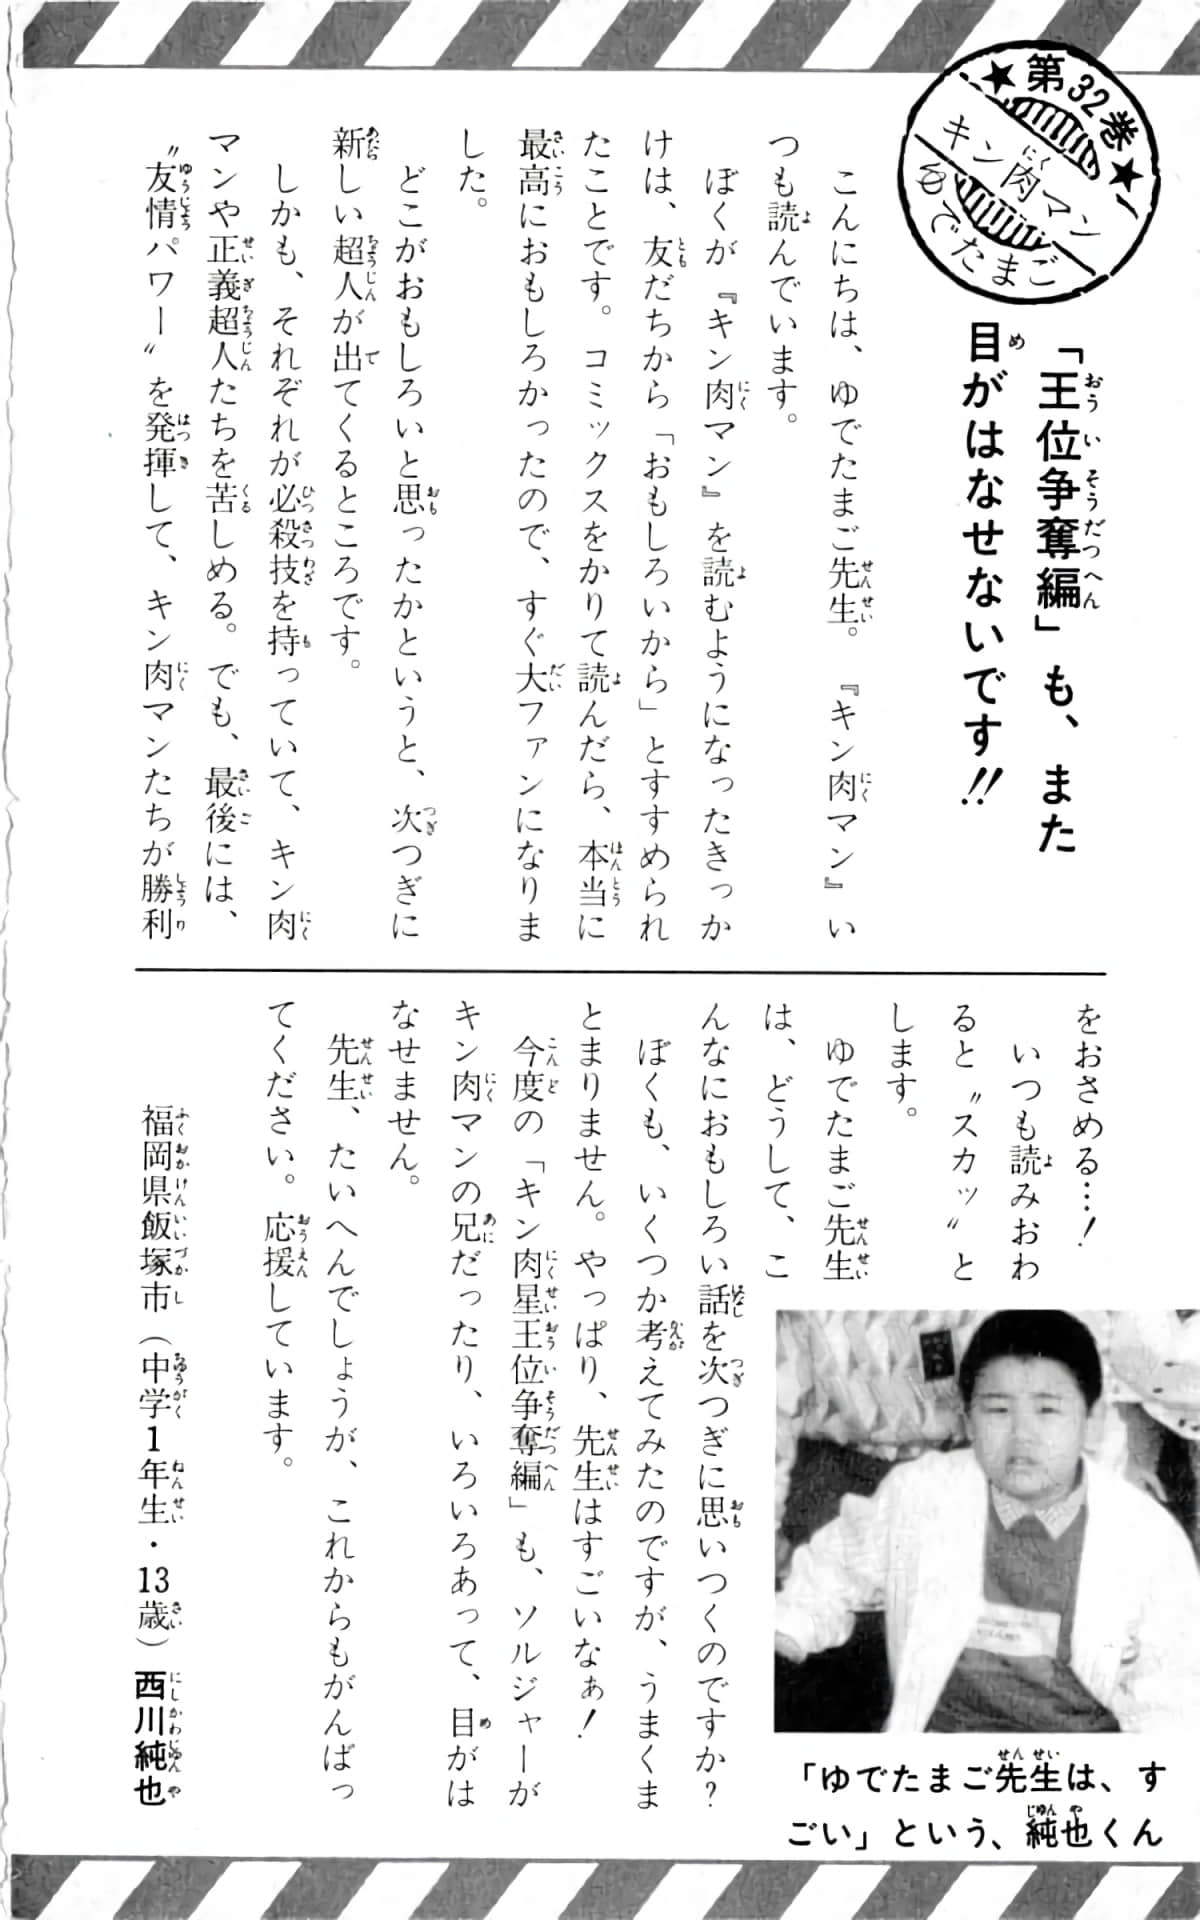 ★第32巻★
キン肉マン
ゆでたまご
「王位争奪編」も、また
目がはなせないです!!
こんにちは、ゆでたまご先生。『キン肉マン』い
つも読んでいます。
ぼくが『キン肉マン』を読むようになったきっか
けは、友だちから「おもしろいから」とすすめられ
たことです。コミックスをかりて読んだら、本当に
最高におもしろかったので、すぐ大ファンになりま
した。
どこがおもしろいと思ったかというと、次つぎに
新しい超人が出てくるところです。
しかも、それぞれが必殺技を持っていて、キン肉
マンや正義超人たちを苦しめる。でも、最後には、
〝友情パワー〟を発揮して、キン肉マンたちが勝利
をおさめる…!
いつも読みおわ
ると〝スカッ〟と
します。
ゆでたまご先生
は、どうして、こ
んなにおもしろい話を次つぎに思いつくのですか?
ぼくも、いくつか考えてみたのですが、うまくま
とまりません。やっぱり、先生はすごいなぁ!
今度の「キン肉星王位争奪編」も、ソルジャーが
キン肉マンの兄だったり、いろいろあって、目がは
なせません。
先生、たいへんでしょうが、これからもがんばっ
てください。応援しています。
福岡県飯塚市(中学1年生・13歳)西川純也
「ゆでたまご先生は、す
ごい」という、純也くん